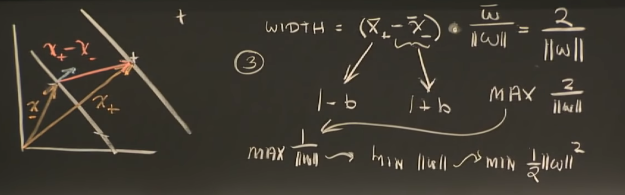 +
x₊ - x₋
+
x₋
x₊
WIDTH = (x̄₊ - x̄₋) · w̄ / ||w|| = 2 / ||w||
③
1 - b
1 + b
MAX 2 / ||w||
MAX 1 / ||w|| → MIN ||w|| → MIN ½||w||²